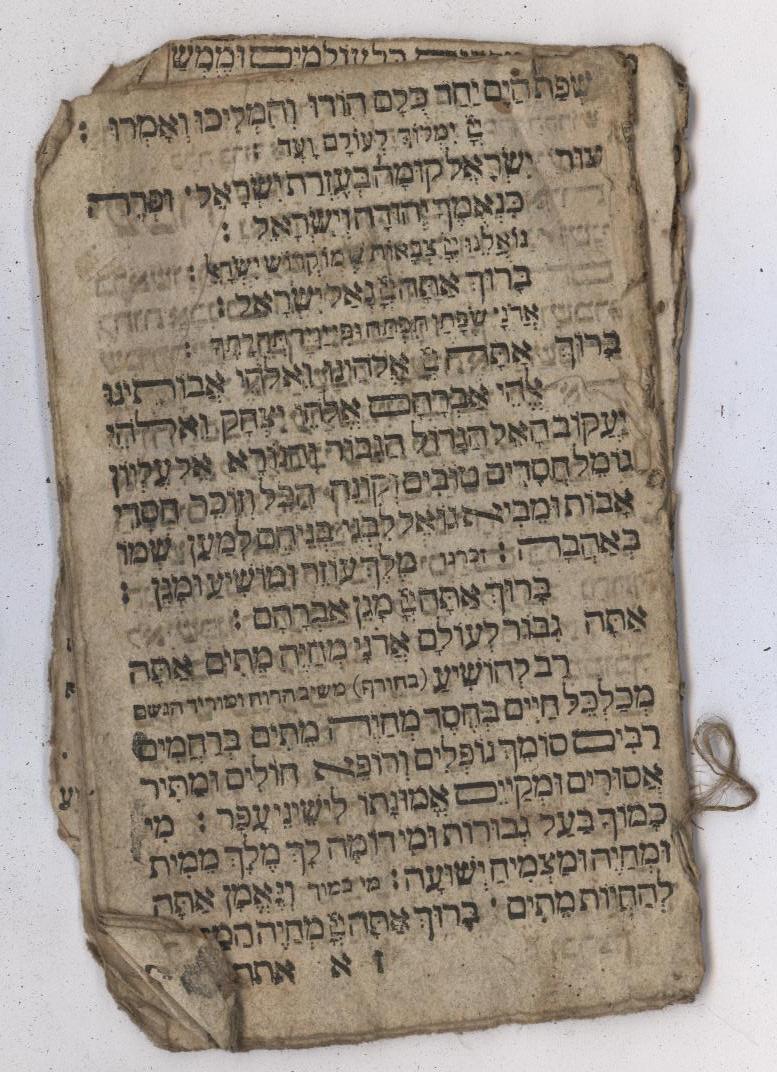 כל עולמים וממש
שְׂפַת הַיָּם יַחַד כֻּלָּם הוֹדוּ וְהִמְלִיכוּ וְאָמְרוּ :
יְיָ יִמְלוֹךְ לְעוֹלָם וָעֶד :
צור יִשְׂרָאֵל קוּמָה בְּעֶזְרַת יִשְׂרָאֵל וּפְדֵה
כִנְאֻמֶךָ יְהוּדָה וְיִשְׂרָאֵל :
גּוֹאֲלֵנוּ יְיָ צְבָאוֹת שְׁמוֹ קְדוֹשׁ יִשְׂרָאֵל :
בָּרוּךְ אַתָּה יְיָ גָּאַל יִשְׂרָאֵל :
אֲדֹנָי שְׂפָתַי תִּפְתָּח וּפִי יַגִּיד תְּהִלָּתֶךָ :
בָּרוּךְ אַתָּה יְיָ אֱלֹהֵינוּ וֵאלֹהֵי אֲבוֹתֵינוּ
אֱלֹהֵי אַבְרָהָם אֱלֹהֵי יִצְחָק וֵאלֹהֵי
יַעֲקוֹב הָאֵל הַגָּדוֹל הַגִּבּוֹר וְהַנּוֹרָא אֵל עֶלְיוֹן
גּוֹמֵל חֲסָדִים טוֹבִים וְקוֹנֵה הַכֹּל וְזוֹכֵר חַסְדֵי
אָבוֹת וּמֵבִיא גּוֹאֵל לִבְנֵי בְנֵיהֶם לְמַעַן שְׁמוֹ
בְּאַהֲבָה : זכרנו מֶלֶךְ עוֹזֵר וּמוֹשִׁיעַ וּמָגֵן :
בָּרוּךְ אַתָּה יְיָ מָגֵן אַבְרָהָם :
אַתָּה גִּבּוֹר לְעוֹלָם אֲדֹנָי מְחַיֵּה מֵתִים אַתָּה
רַב לְהוֹשִׁיעַ (בחורף) משיב הרוח ומוריד הגשם
מְכַלְכֵּל חַיִּים בְּחֶסֶד מְחַיֵּה מֵתִים בְּרַחֲמִים
רַבִּים סוֹמֵךְ נוֹפְלִים וְרוֹפֵא חוֹלִים וּמַתִּיר
אֲסוּרִים וּמְקַיֵּים אֱמוּנָתוֹ לִישֵׁינֵי עָפָר : מִי
כָמוֹךָ בַּעַל גְּבוּרוֹת וּמִי דוֹמֶה לָךְ מֶלֶךְ מֵמִית
וּמְחַיֶּה וּמַצְמִיחַ יְשׁוּעָה : מי כמוך וְנֶאֱמָן אַתָּה
לְהַחֲיוֹת מֵתִים בָּרוּךְ אַתָּה יְיָ מְחַיֵּה
ז א אתה